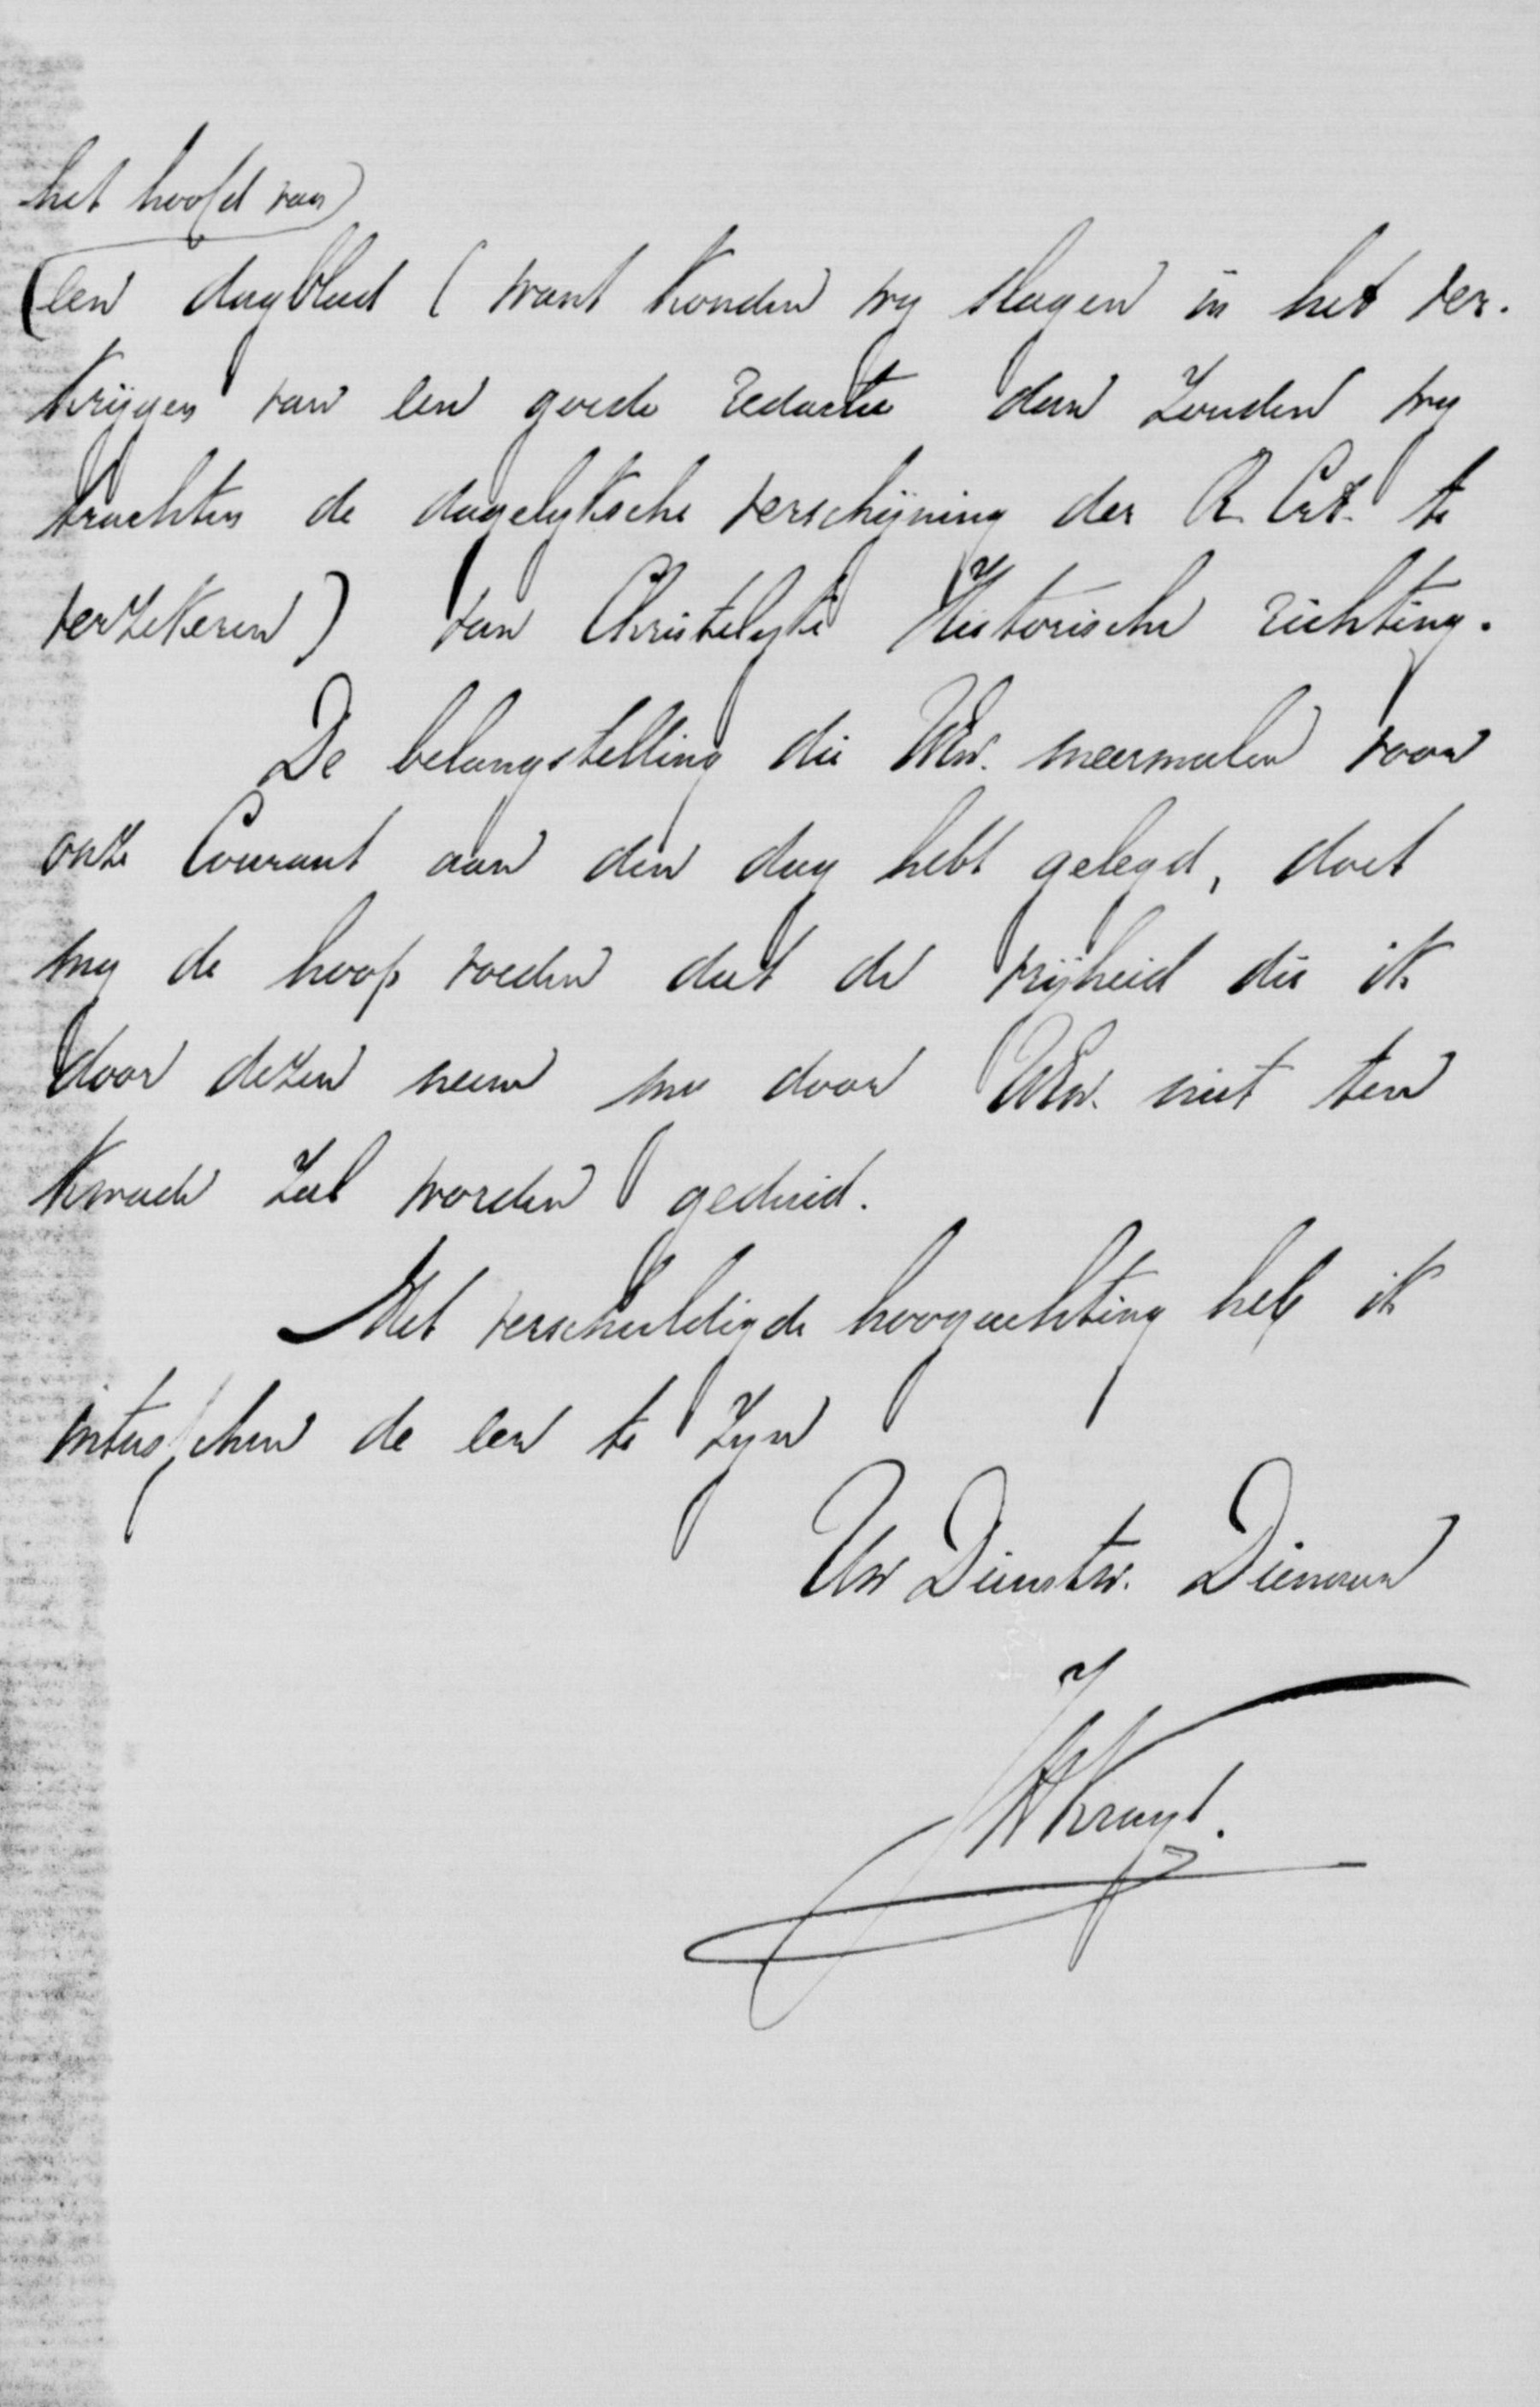 het hoofd van
een dagblad (want konden wy slagen in het ver.
krijgen van een goede redactie dan zouden wy
trachten de dagelyksche verschijning der R. Crt. te
verzekeren) van Christelyk Historische richting.
De belangstelling die UEw. meermalen voor
onze Courant aan den dag hebt gelegd, doet
my de hoop voeden dat de vrijheid die ik
door dezen neem me door UEw. niet ten
kwade zal worden geduid.
Met verschuldigde hoogachting heb ik
intusschen de eer te zyn
Uw Dienstw. Dienaar
Kruyt.